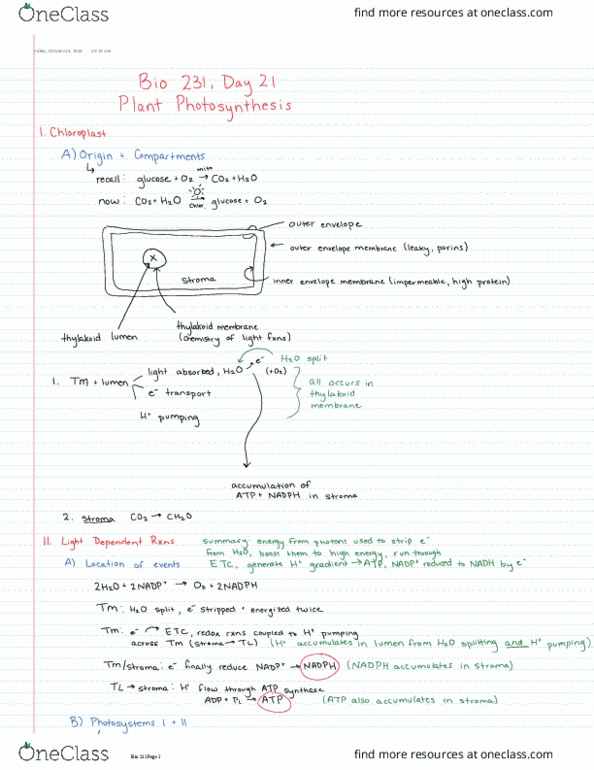 OneClass
find more resources at oneclass.com
10:31 AM
Bio 231, Day 21
Plant Photosynthesis
I. Chloroplast
A) Origin + Compartments
recall: glucose + O₂ mito → CO₂ + H₂O
now: CO₂ + H₂O → glucose + O₂
outer envelope
outer envelope membrane (leaky, porins)
x
stroma
inner envelope membrane (impermeable, high protein)
thylakoid lumen
thylakoid membrane
(chemistry of light fxns)
H₂O split
1. Tm + lumen
light absorbed, H₂O → e⁻ (+O₂)
e⁻ transport
H⁺ pumping
all occurs in
thylakoid
membrane
accumulation of
ATP + NADPH in stroma
2. stroma CO₂ → CH₂O
II. Light Dependent Rxns
summary: energy from photons used to strip e⁻
from H₂O, boost them to high energy, run through
A) Location of events
ETC, generate H⁺ gradient → ATP, NADP⁺ reduced to NADH by e⁻
2H₂O + 2NADP⁺ → O₂ + 2NADPH
Tm: H₂O split, e⁻ stripped + energized twice
Tm: e⁻ → ETC, redox rxns coupled to H⁺ pumping
across Tm (stroma → TL) (H⁺ accumulates in lumen from H₂O splitting and H⁺ pumping)
Tm/stroma: e⁻ finally reduce NADP⁺ → NADPH (NADPH accumulates in stroma)
TL → stroma: H⁺ flow through ATP synthase
ADP + Pi → ATP (ATP also accumulates in stroma)
B) Photosystems I + II
OneClass
Bio 231 Page 1
find more resources at oneclass.com